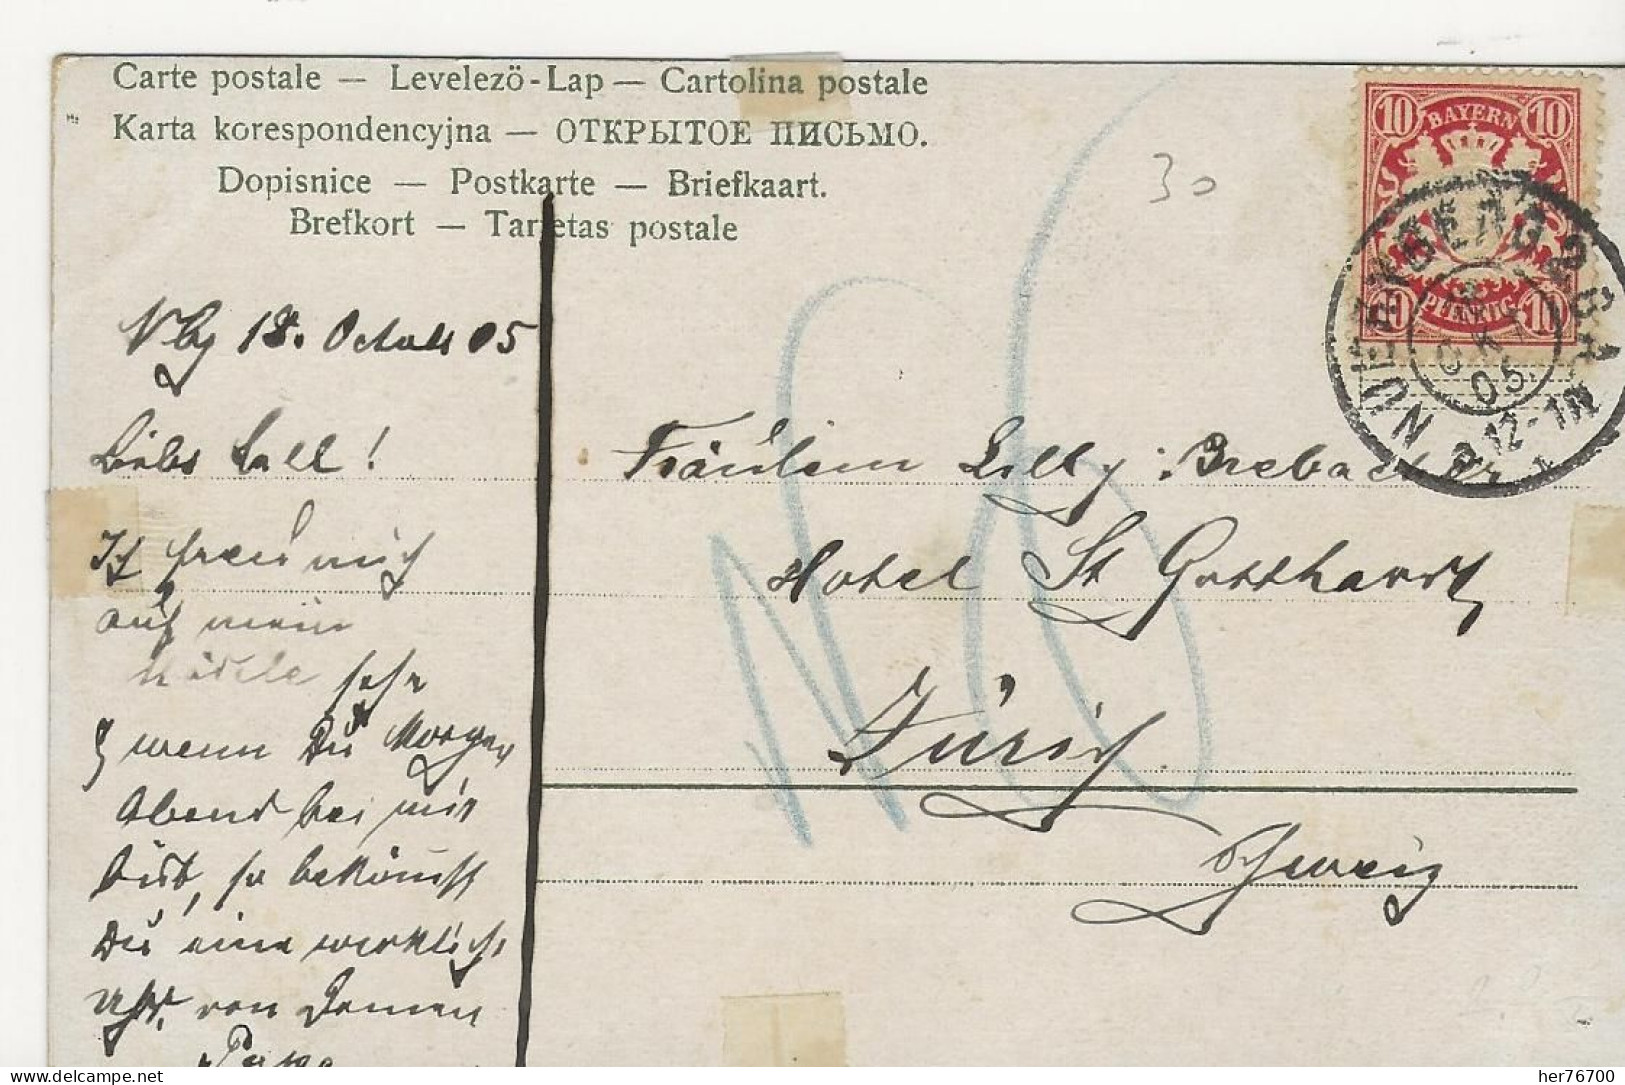 Carte postale — Levelező-Lap — Cartolina postale
Karta korespondencyjna — ОТКРЫТОЕ ПИСЬМО.
Dopisnice — Postkarte — Briefkaart.
Brefkort — Tarjetas postale
30
10 BAYERN 10
10 PFENNIG 10
NUERNBERG 2
OKT
05
Nbg 18. Octob 05
Liebes !
Ich freu mich
auf mein
sehr
& wenn Du Morgen
Abend bei mir
bist, so bekommst
Du eine wirkliche
Uhr. von Deinem
Papa
Fräulein Lilly Brebach
Hotel St Gotthardt
Zürich
Schweiz
delcampe.net
her76700